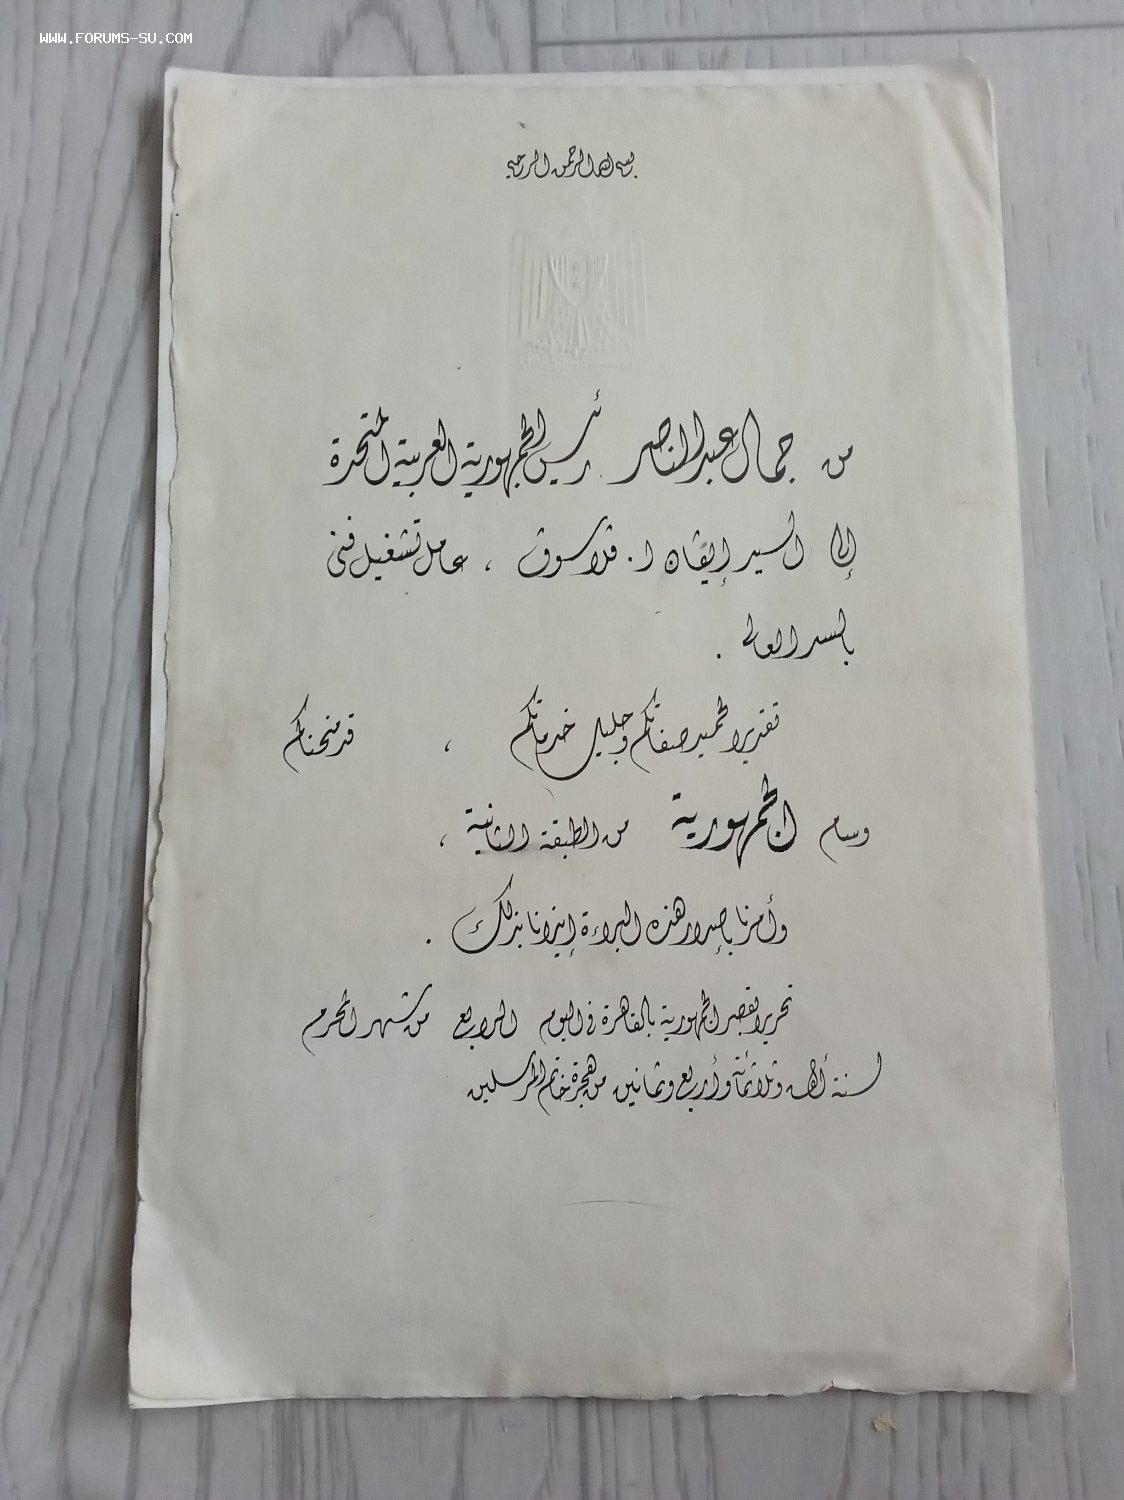 WWW.FORUMS-SU.COM
بسم الله الرحمن الرحيم
من جمال عبد الناصر رئيس الجمهورية العربية المتحدة
إلى السيد إيڤان ا. ڤلاسوڤ ، عامل تشغيل فنى
بالسد العالى .
تقديرا لحميد صفاتكم وجليل خدماتكم ، قد منحناكم
وسام الجمهورية من الطبقة الثانية ،
وأمرنا بإصدار هذه البراءة إيذانا بذلك .
تحريرا بقصر الجمهورية بالقاهرة فى اليوم الرابع من شهر المحرم
لسنة ألف وثلاثمائة وأربع وثمانين من هجرة خاتم المرسلين